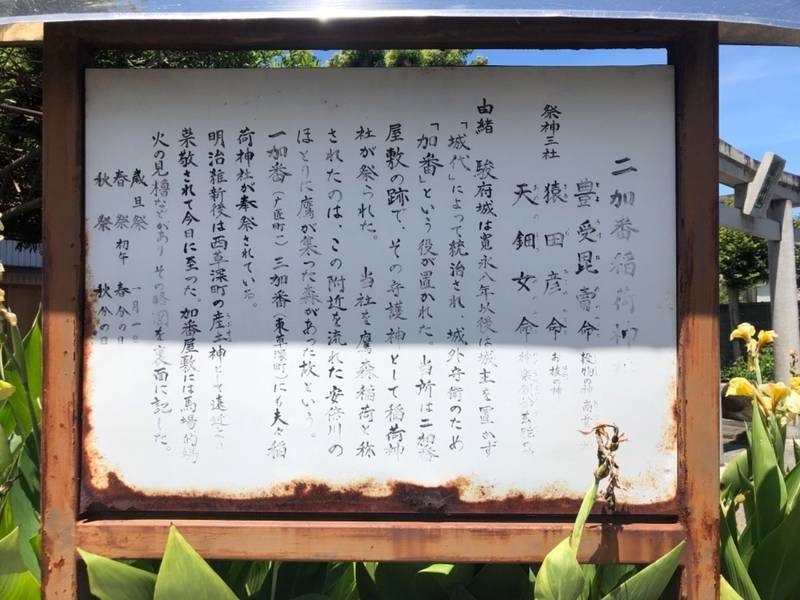 二加番稲荷神
祭神三社
豊受昆壽命 穀物の神
猿田彦命 お祓の神
天鈿女命
由緒 駿府城は寛永八年以後は城主を置かず
「城代」によって統治され、城外守衛のため
「加番」という役が置かれた。当所は二加番
屋敷の跡で、その守護神として稲荷神
社が祭られた。 当社を鷹森稲荷と称
されたのは、この附近を流れた安倍川の
ほとりに鷹が集った森があった故という。
一加番（片匠町）三加番（東草深町）にも夫々稲
荷神社が奉祭されている。
明治維新後は西草深町の産土神として遠近より
崇敬されて今日に至った。加番屋敷には馬場的場
火の見櫓などがあり その略図を裏面に記した。
歳旦祭 一月一日
春祭 初午 春分の日
秋祭 秋分の日